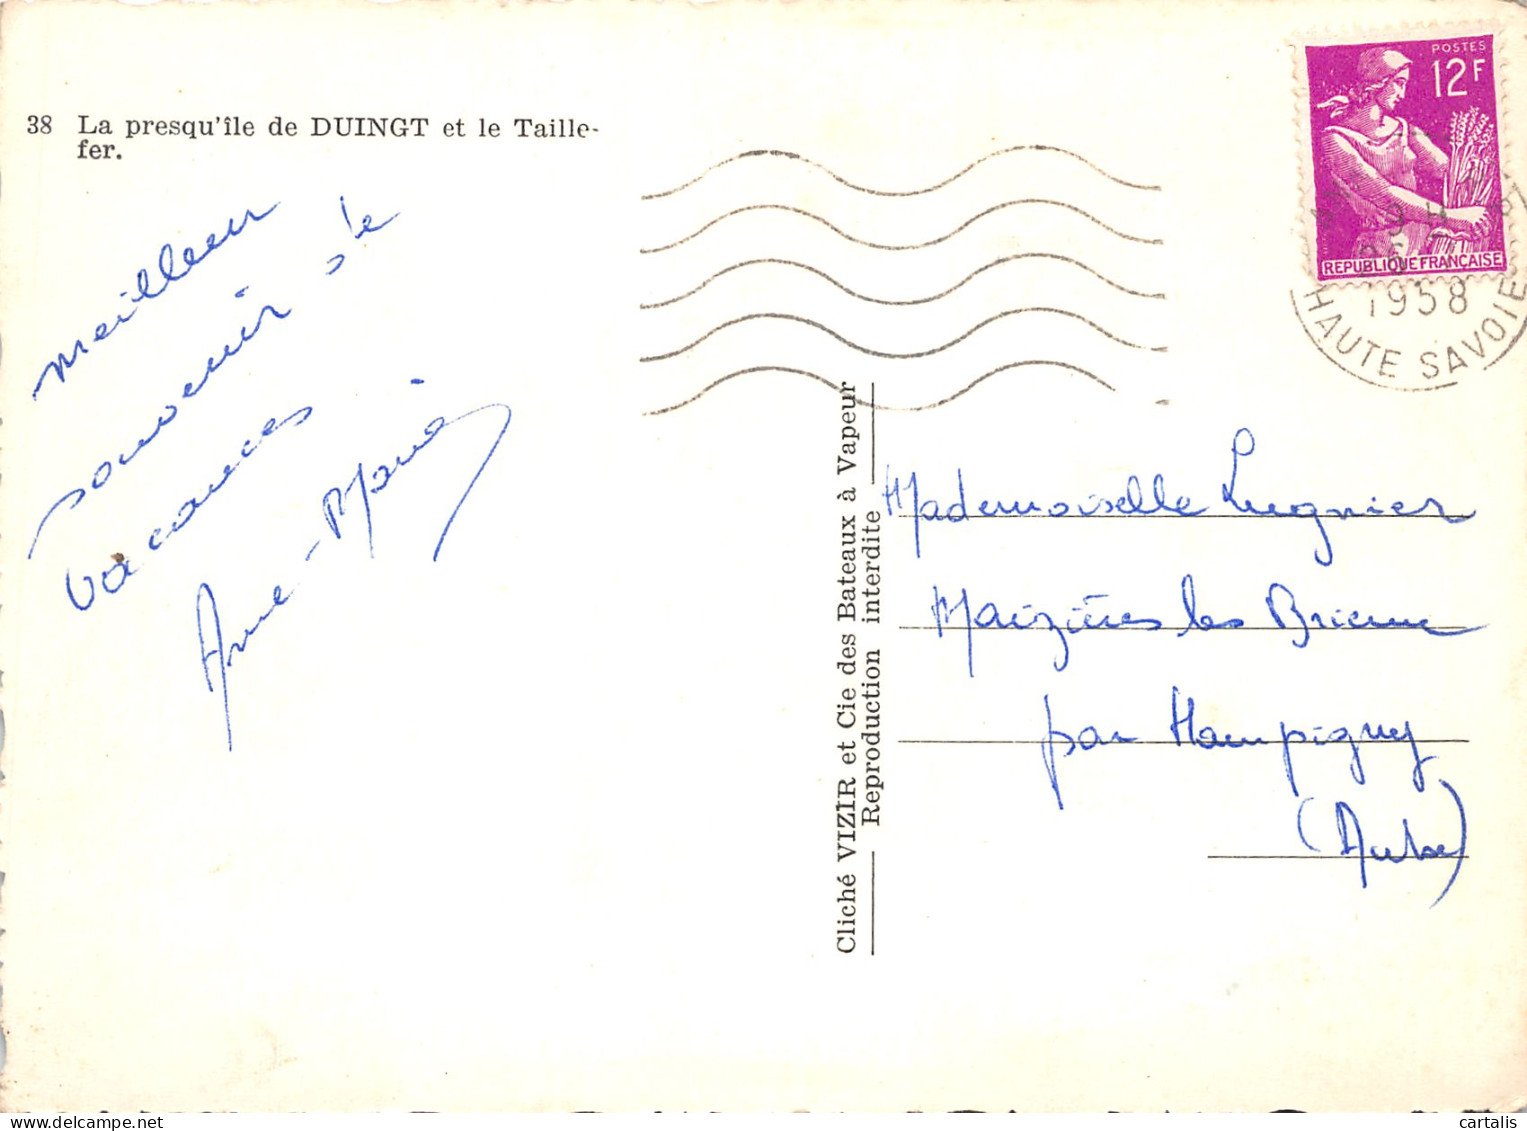 38 La presqu'île de DUINGT et le Taille-
fer.
meilleur
souvenir de
vacances
Anne-Marie
POSTES
12F
REPUBLIQUE FRANÇAISE
9 H
1958
HAUTE SAVOIE
Cliché VIZIR et Cie des Bateaux à Vapeur
Reproduction interdite
Mademoiselle Lugnier
Maizières les Brienne
par Hampigny
(Aube)
cartalis